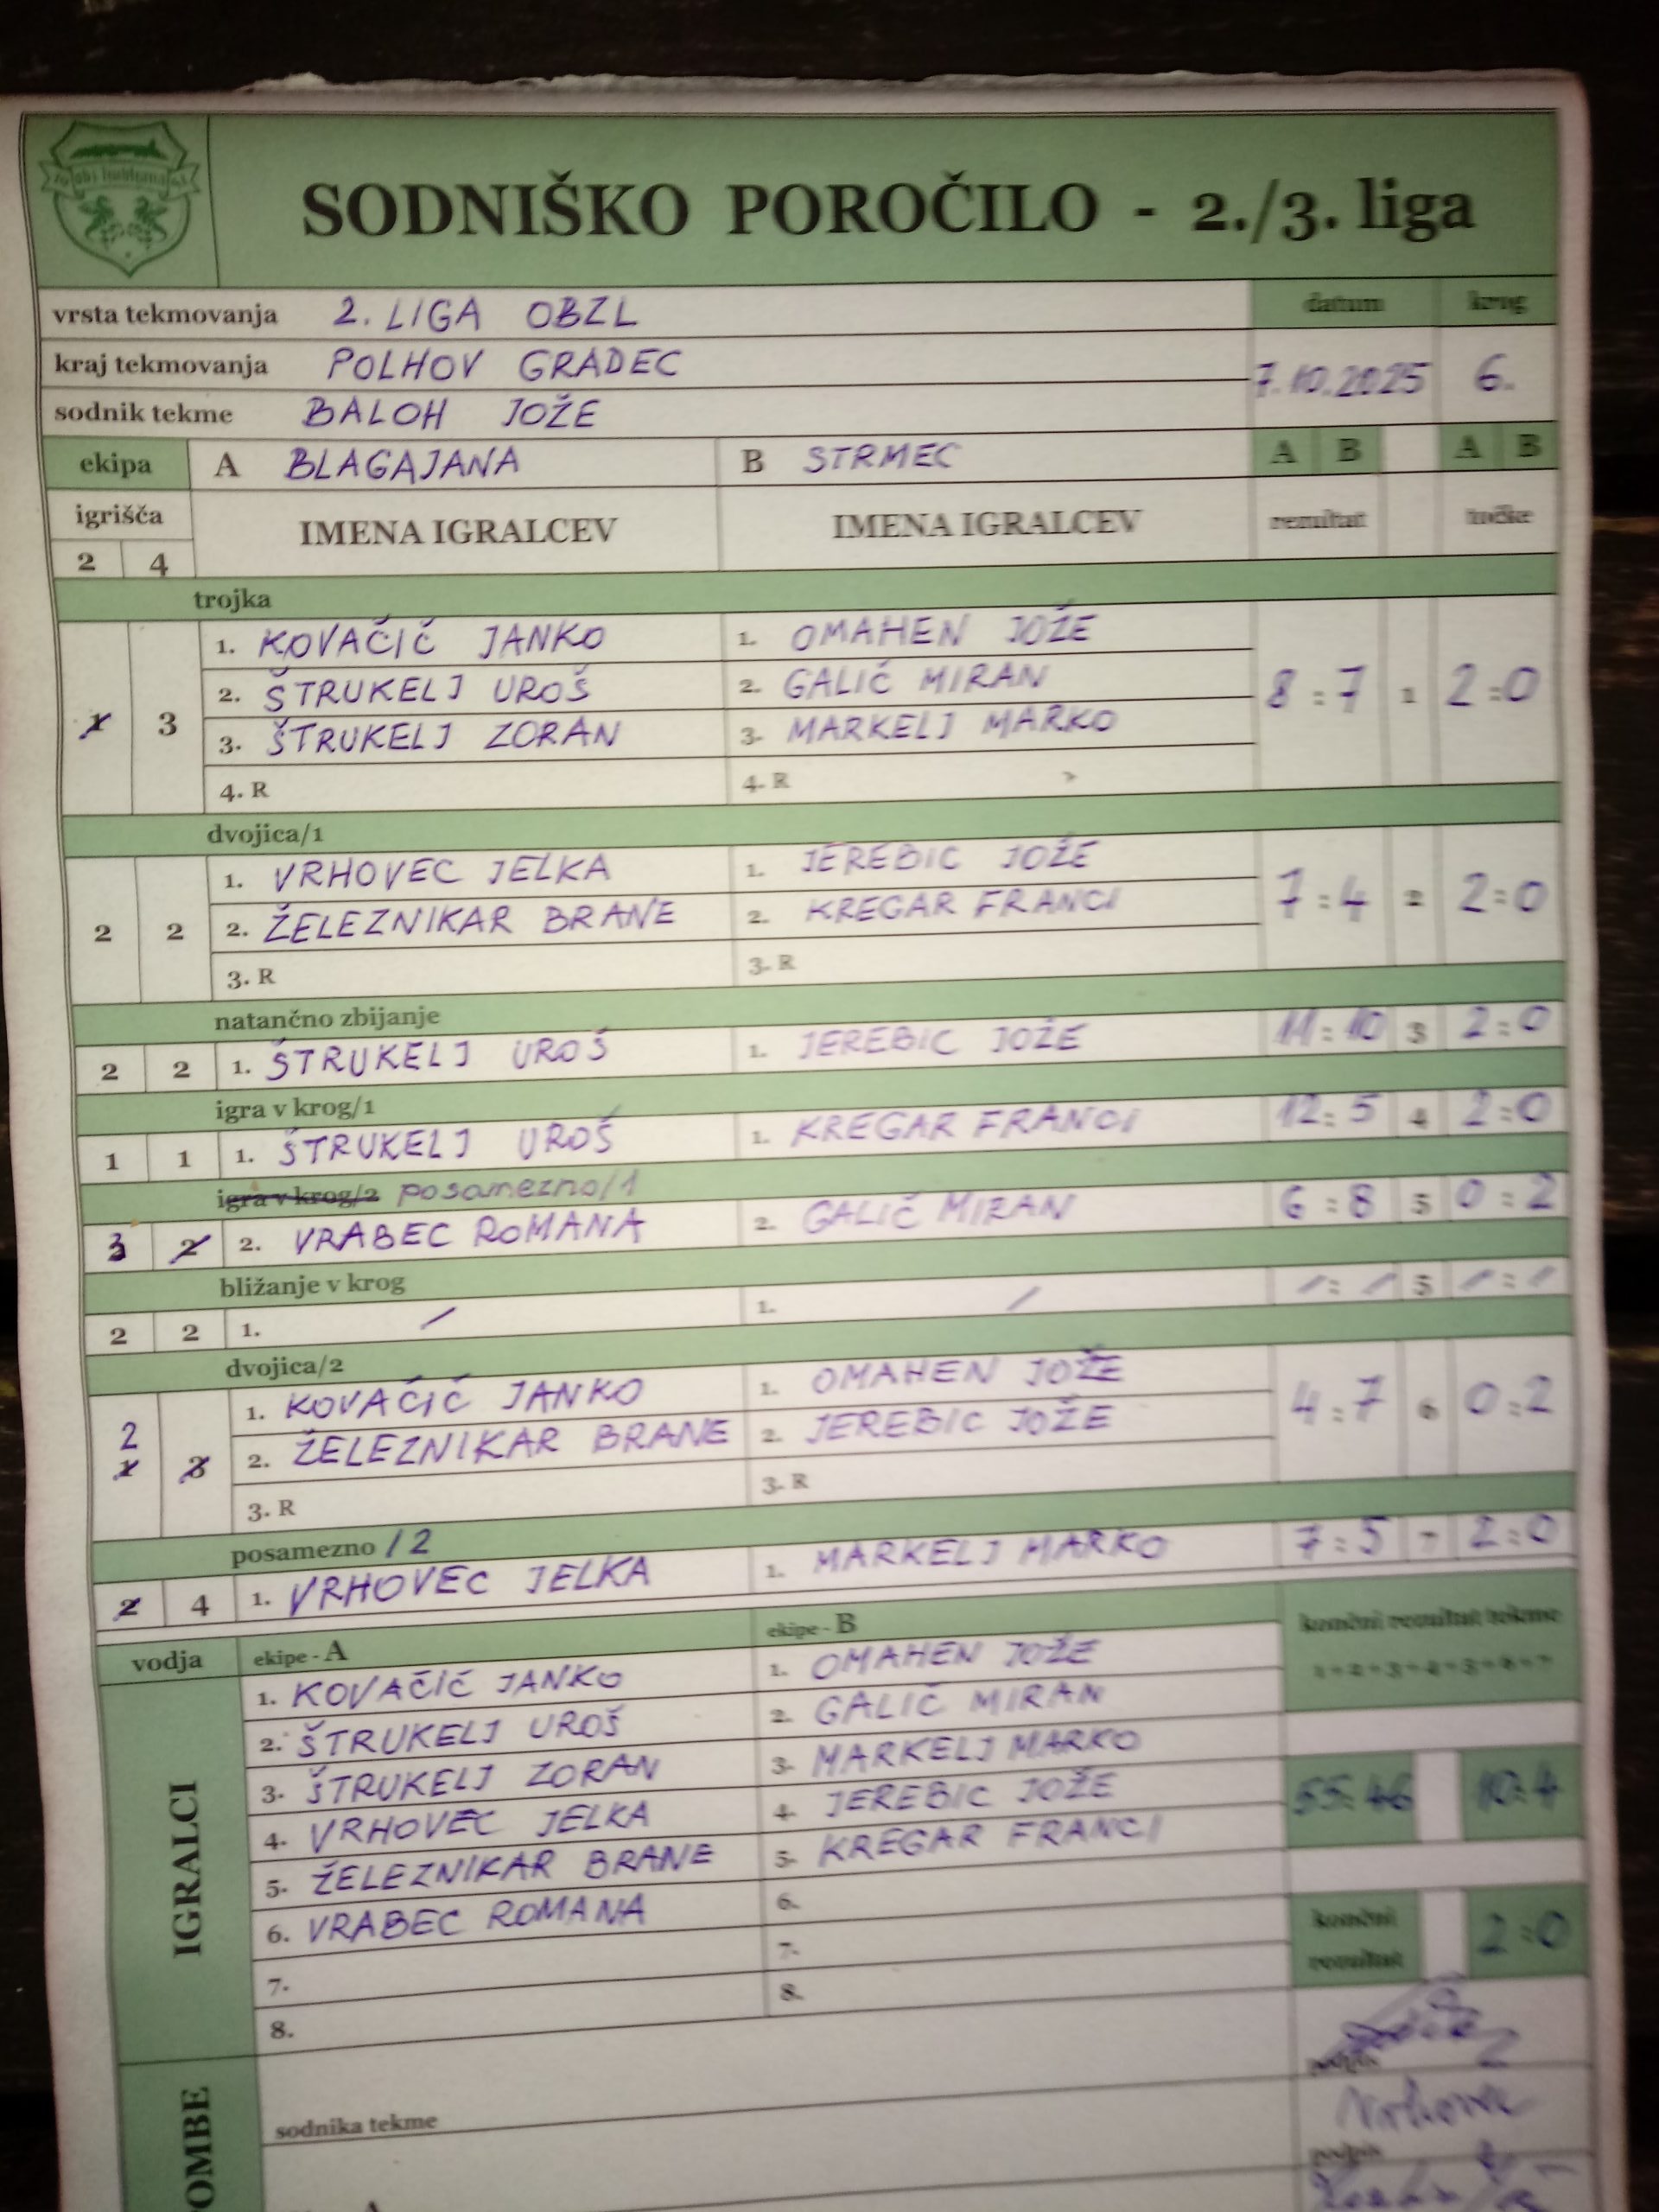 SODNIŠKO POROČILO - 2./3. liga
vrsta tekmovanja 2. LIGA OBZL datum krog
kraj tekmovanja POLHOV GRADEC 7.10.2025 6.
sodnik tekme BALOH JOŽE
ekipa A BLAGAJANA B STRMEC A B A B
igrišča IMENA IGRALCEV IMENA IGRALCEV rezultat točke
2 4
trojka
1. KOVAČIČ JANKO 1. OMAHEN JOŽE
2. ŠTRUKELJ UROŠ 2. GALIČ MIRAN
1 3 8 : 7 1 2:0
3. ŠTRUKELJ ZORAN 3. MARKELJ MARKO
4. R 4. R
dvojica/1
1. VRHOVEC JELKA 1. JEREBIC JOŽE
2 2 2. ŽELEZNIKAR BRANE 2. KREGAR FRANCI 7:4 2 2:0
3. R 3. R
natančno zbijanje
2 2 1. ŠTRUKELJ UROŠ 1. JEREBIC JOŽE 11:10 3 2:0
igra v krog/1
1 1 1. ŠTRUKELJ UROŠ 1. KREGAR FRANCI 12:5 4 2:0
igra v krog/2 posamezno/1
3 2 2. VRABEC ROMANA 2. GALIČ MIRAN 6:8 5 0:2
bližanje v krog
2 2 1. / 1. / /:/ 5 /:/
dvojica/2
1. KOVAČIČ JANKO 1. OMAHEN JOŽE
2 1 3 2. ŽELEZNIKAR BRANE 2. JEREBIC JOŽE 4:7 6 0:2
3. R 3. R
posamezno /2
2 4 1. VRHOVEC JELKA 1. MARKELJ MARKO 7:5 7 2:0
vodja ekipe - A ekipe - B končni rezultat tekme
1+2+3+4+5+6+7
IGRALCI
1. KOVAČIČ JANKO 1. OMAHEN JOŽE
2. ŠTRUKELJ UROŠ 2. GALIČ MIRAN
3. ŠTRUKELJ ZORAN 3. MARKELJ MARKO
4. VRHOVEC JELKA 4. JEREBIC JOŽE 55:46 10:4
5. ŽELEZNIKAR BRANE 5. KREGAR FRANCI
6. VRABEC ROMANA 6.
7. 7. končni rezultat 2:0
8. 8.
podpis
sodnika tekme
Vrhovec
podpis